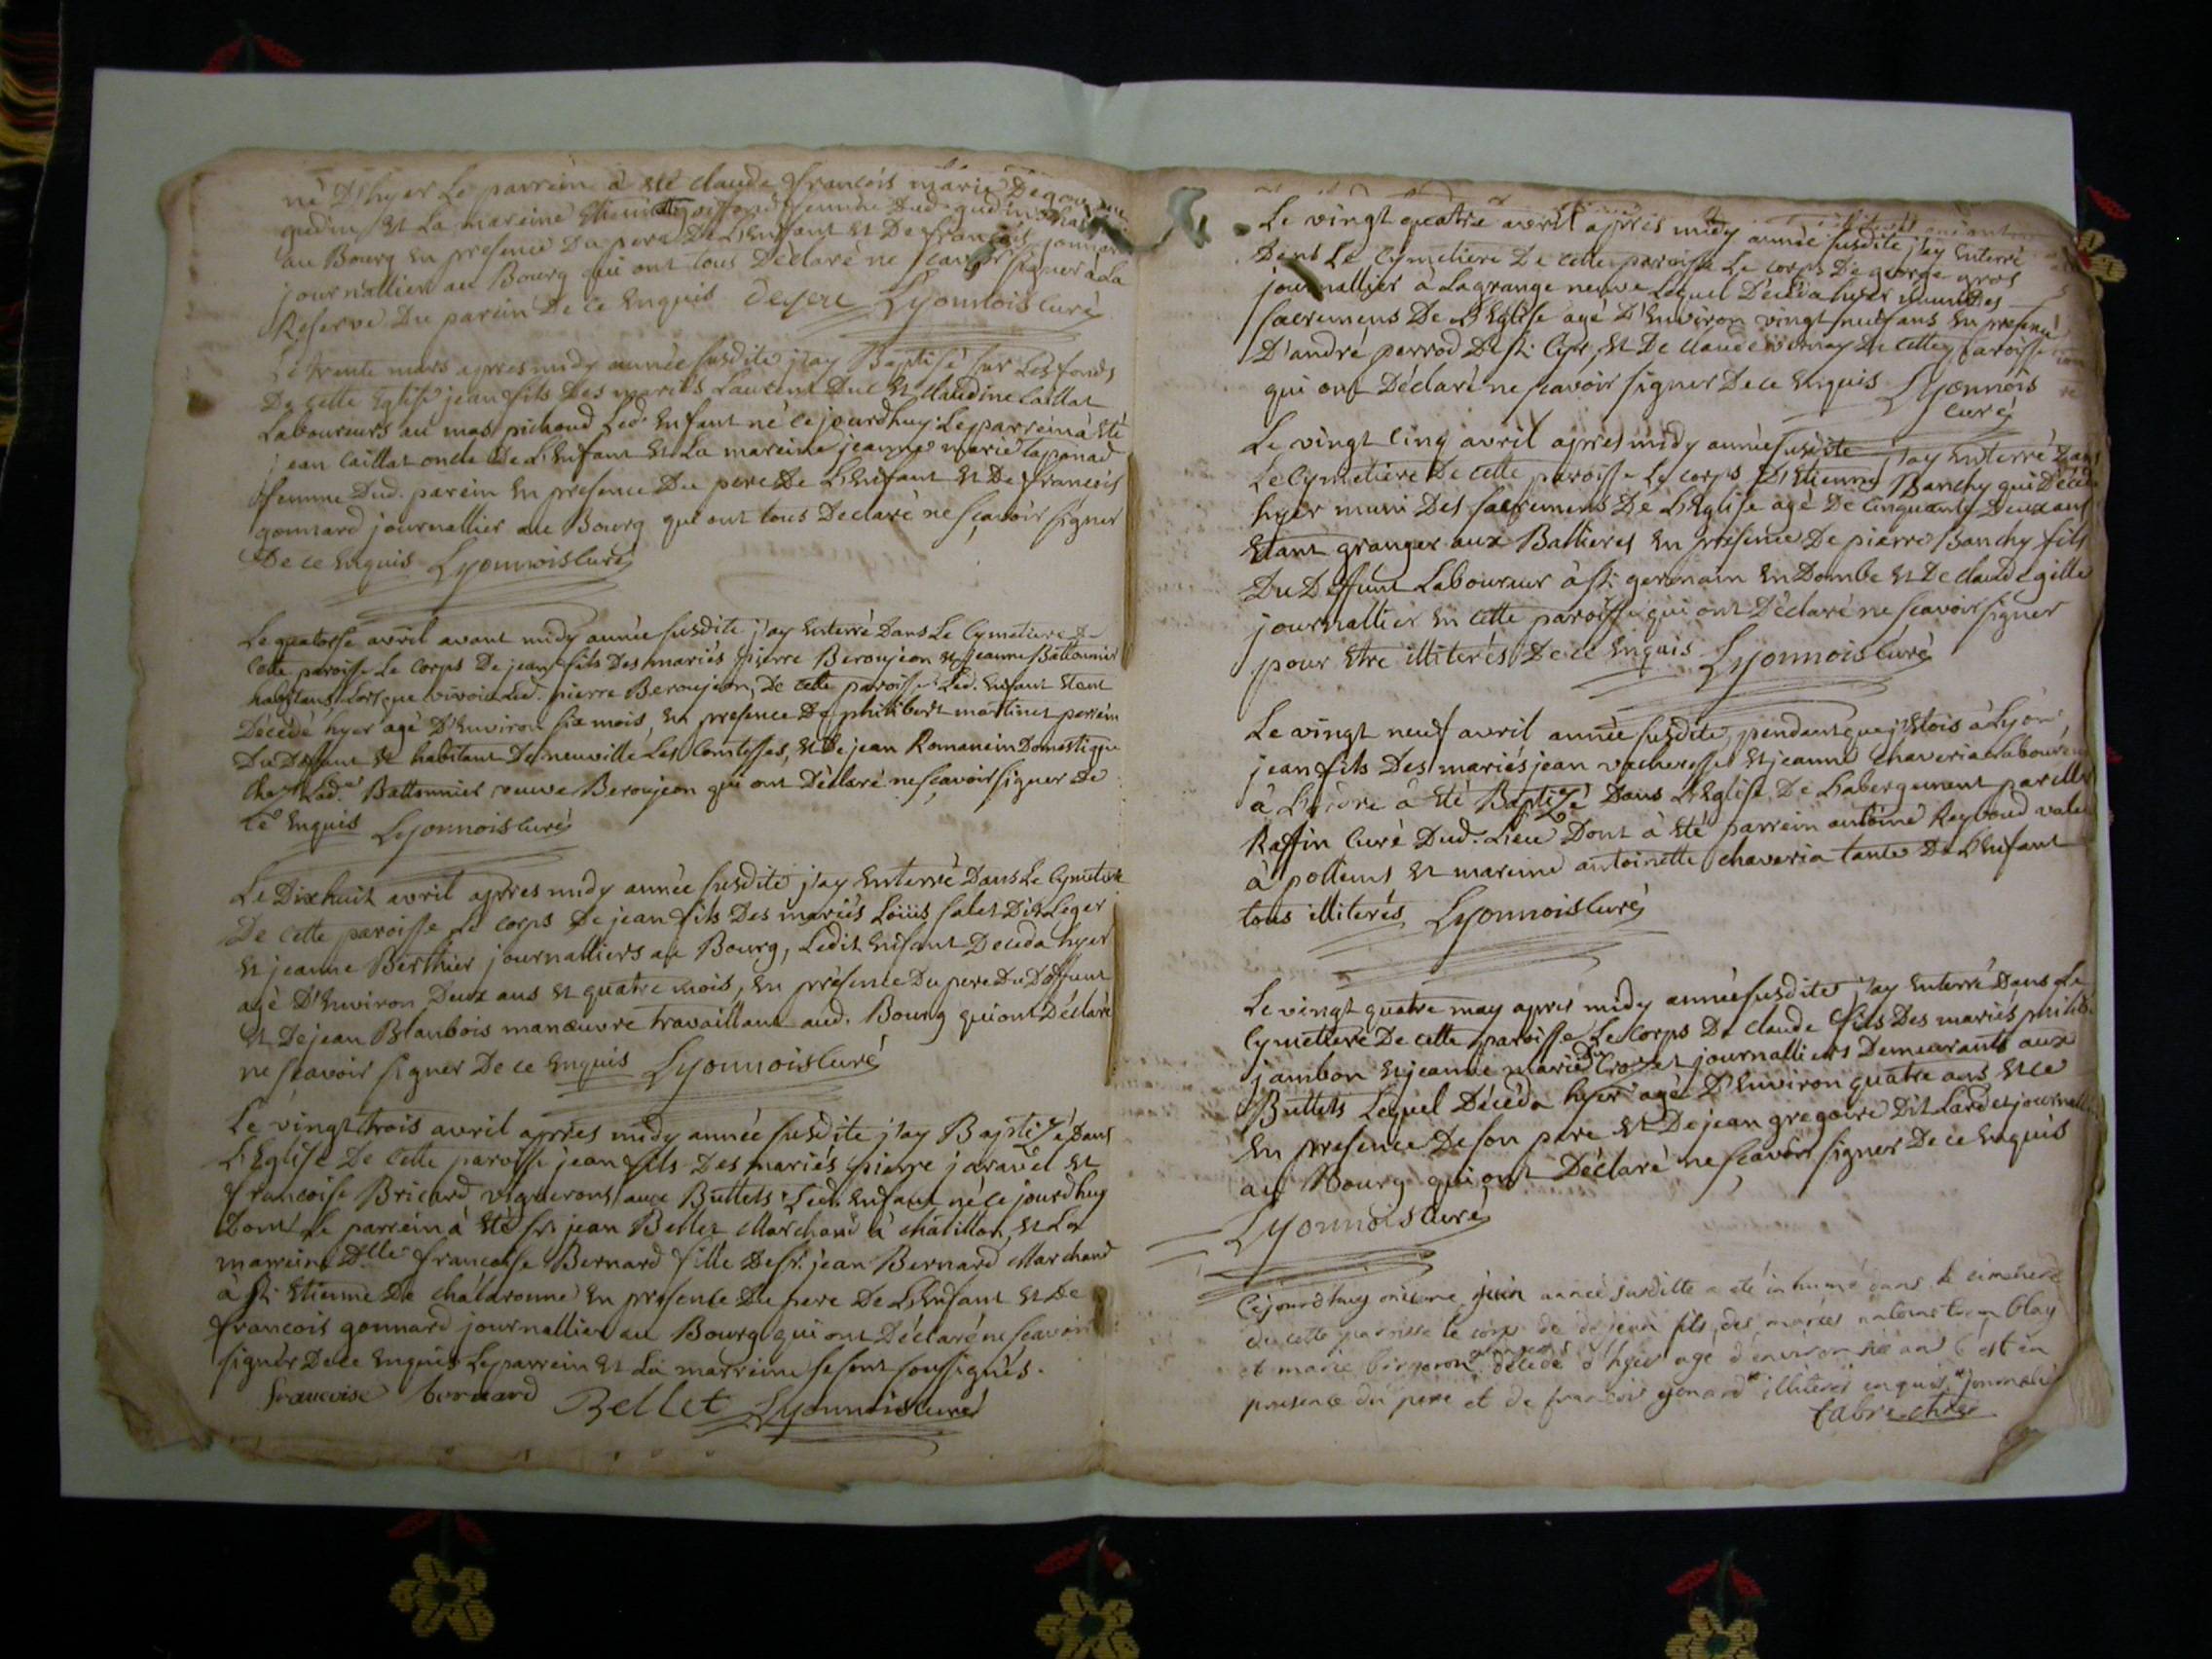 né D'hyer Le parrein à été claude francois marie
gudin Et La mareine femme Dud. gudin
au Bourg En presence Du pere De L'Enfant Et De francois gonnard
journallier au Bourg qui ont tous Déclaré ne scavoir signer à La
Reserve Du parein De ce Enquis Lyonnois Curé
Le trente mars apres midy année susdite j'ay Baptisé sur Les fonds
De cette Eglise jean fils Des mariés Laurent Duc Et Claudine Caillat
Laboureurs au mas pichaud Led. Enfant né ce jourdhuy. Le parrein à été
jean Caillat oncle De L'Enfant Et La mareine jeanne marie Taponad
femme Dud. parein En presence Du pere De L'Enfant Et De francois
gonnard journallier au Bourg qui ont tous Declaré ne scavoir signer
De ce Enquis Lyonnois Curé
Le quatorse avril avant midy année susdite j'ay Enterré Dans Le Cymetiere De
Cette paroisse Le Corps De jean fils Des mariés pierre Beroujon Et jeanne Battonnier
habitans Lorsque vivoit Led. pierre Beroujon, De cette paroisse Led. Enfant étant
Décédé hyer agé D'Environ six mois, En presence De philibert martinet perrein
Du Deffunt Et habitant De neuville Les Comtesses, Et De jean Romanein Domestique
Chez Lad.e Battonnier veuve Beroujon qui ont Déclaré ne scavoir signer De
Ce Enquis Lyonnois Curé
Le Dixhuit avril apres midy année susdite j'ay Enterré Dans Le Cymetiere
De cette paroisse Le corps De jean fils Des mariés Loüis salet Dit Leger
Et jeanne Berthier journalliers au Bourg, Ledit Enfant Deceda hyer
agé D'Environ Deux ans Et quatre mois, En présence Du pere Du Deffunt
Et De jean Blanbois manœuvre travaillant aud. Bourg qui ont Déclaré
ne scavoir signer De ce Enquis Lyonnois Curé
Le vingt trois avril apres midy année susdite j'ay Baptizé Dans
L'Eglise De Cette paroisse jean fils Des mariés pierre jaravel Et
francoise Bricard vignerons aux Buttets Led. Enfant né ce jourdhuy
Dont Le parrein à été sr. jean Bellet Marchand à châtillon, Et La
marreine Dlle francoise Bernard fille De sr. jean Bernard Marchand
à St. Etienne De châlaronne En presence Du pere De L'Enfant Et De
francois gonnard journallier au Bourg qui ont Déclaré ne scavoir
signer De ce Enquis Le parrein Et La marreine se sont soussignés.
francoise bernard Bellet Lyonnois Curé
Le vingt quatre avril apres midy année susdite j'ay Enterré
Dans Le Cymetiere De cette paroisse Le corps De george gros
journallier à Lagrange neuve Lequel Décéda hyer muni Des
sacremens De L'Eglise agé D'Environ vingt neuf ans En presence
D'andré perrod De St. Cyr, Et De claude De cette paroisse
qui ont Déclaré ne scavoir signer De ce Enquis Lyonnois
Curé
Le vingt cinq avril apres midy année susdite j'ay Enterré Dans
Le Cymetiere De cette paroisse Le corps D'Etienne Banchy qui Décéda
hyer muni Des sacremens De L'Eglise agé De Cinquante Deux ans
Etant granger aux Ballieres En presence De pierre Banchy fils
Du Deffunt Laboureur à St. germain En Dombe Et De claude gille
journallier En cette paroisse qui ont Déclaré ne scavoir signer
pour être illiterés De ce Enquis Lyonnois Curé
Le vingt neuf avril année susdite, pendant que j'étois à Lyon
jean fils Des mariés jean vacheresse Et jeanne chaveria Laboureurs
à à été Baptizé Dans L'Eglise De Labergement par Mr
Raffin Curé Dud. Lieu Dont à été parrein antoine Reybaud valet
à polliens Et mareine antoinette chaveria tante De L'Enfant
tous illiterés Lyonnois Curé
Le vingt quatre may apres midy année susdite j'ay Enterré Dans Le
Cymetiere De cette paroisse Le Corps De claude fils Des mariés philib.
jambon Et jeanne marie Du Crozet journalliers Demeurants aux
Buttets Lequel Décéda hyer agé D'Environ quatre ans Et ce
En presence De son pere Et De jean gregoire Dit Lardet journallier
au Bourg qui ont Déclaré ne scavoir signer De ce Enquis
Lyonnois Curé
Cejourdhuy onzieme juin année susditte a été inhumé dans le cimetiere
de cette paroisse le corps de jean fils des mariés blay
et marie décédé d'hyer agé d'environ six ans c'est en
presence du père et de francois gonard illiterés enquis journalier
fabre